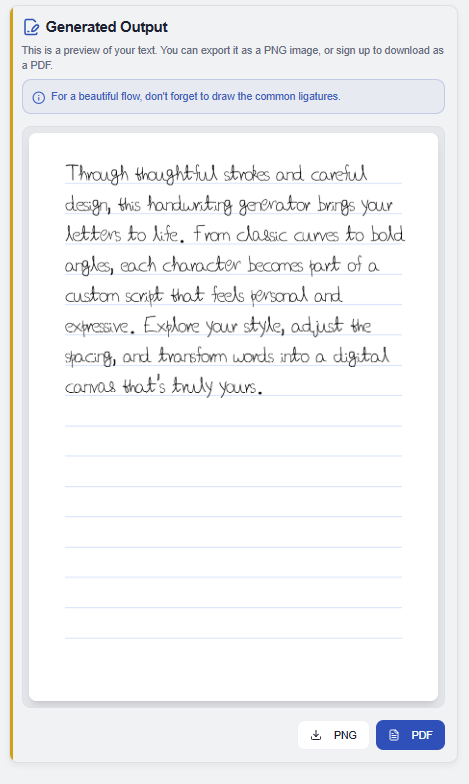 Generated Output
This is a preview of your text. You can export it as a PNG image, or sign up to download as
a PDF.
For a beautiful flow, don't forget to draw the common ligatures.
Through thoughtful strokes and careful
design, this handwriting generator brings your
letters to life. From classic curves to bold
angles, each character becomes part of a
custom script that feels personal and
expressive. Explore your style, adjust the
spacing, and transform words into a digital
canvas that's truly yours.
PNG PDF